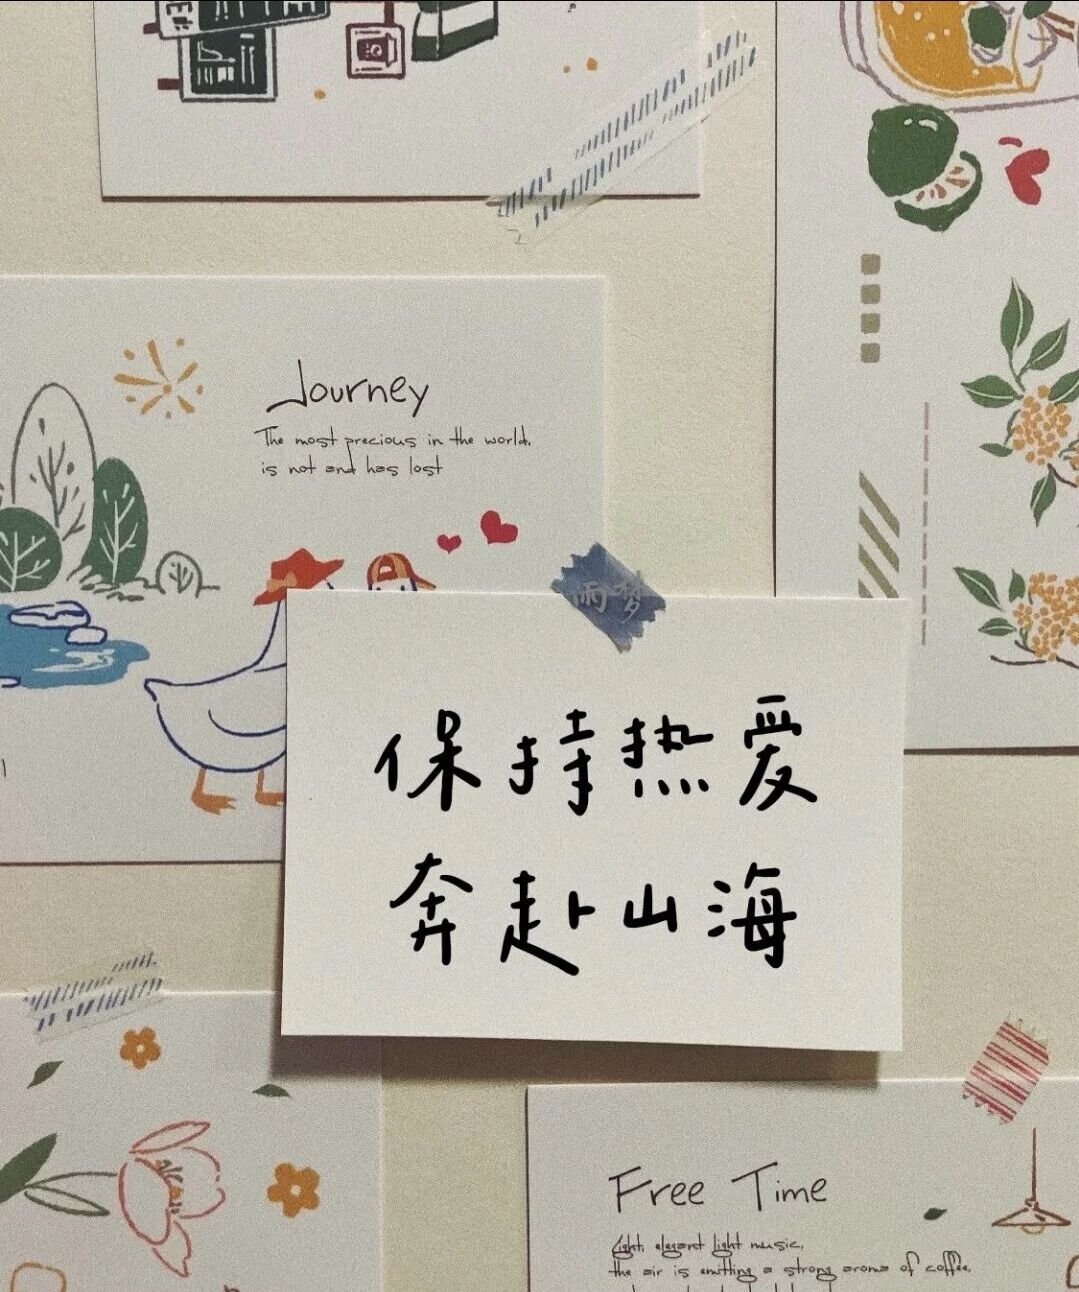 Journey
The most precious in the world.
is not and has lost
雨梦
保持热爱
奔赴山海
Free Time
Light, elegant light music,
the air is emitting a strong aroma of coffee,